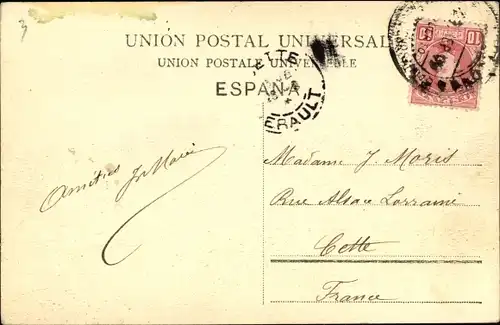 3
UNION POSTAL UNIVERSAL
UNION POSTALE UNIVERSELLE
ESPAÑA
CETTE
HERAULT
10
10
Amitiés
Madame J. Moris
Rue Alsace Lorraine
Cette
France